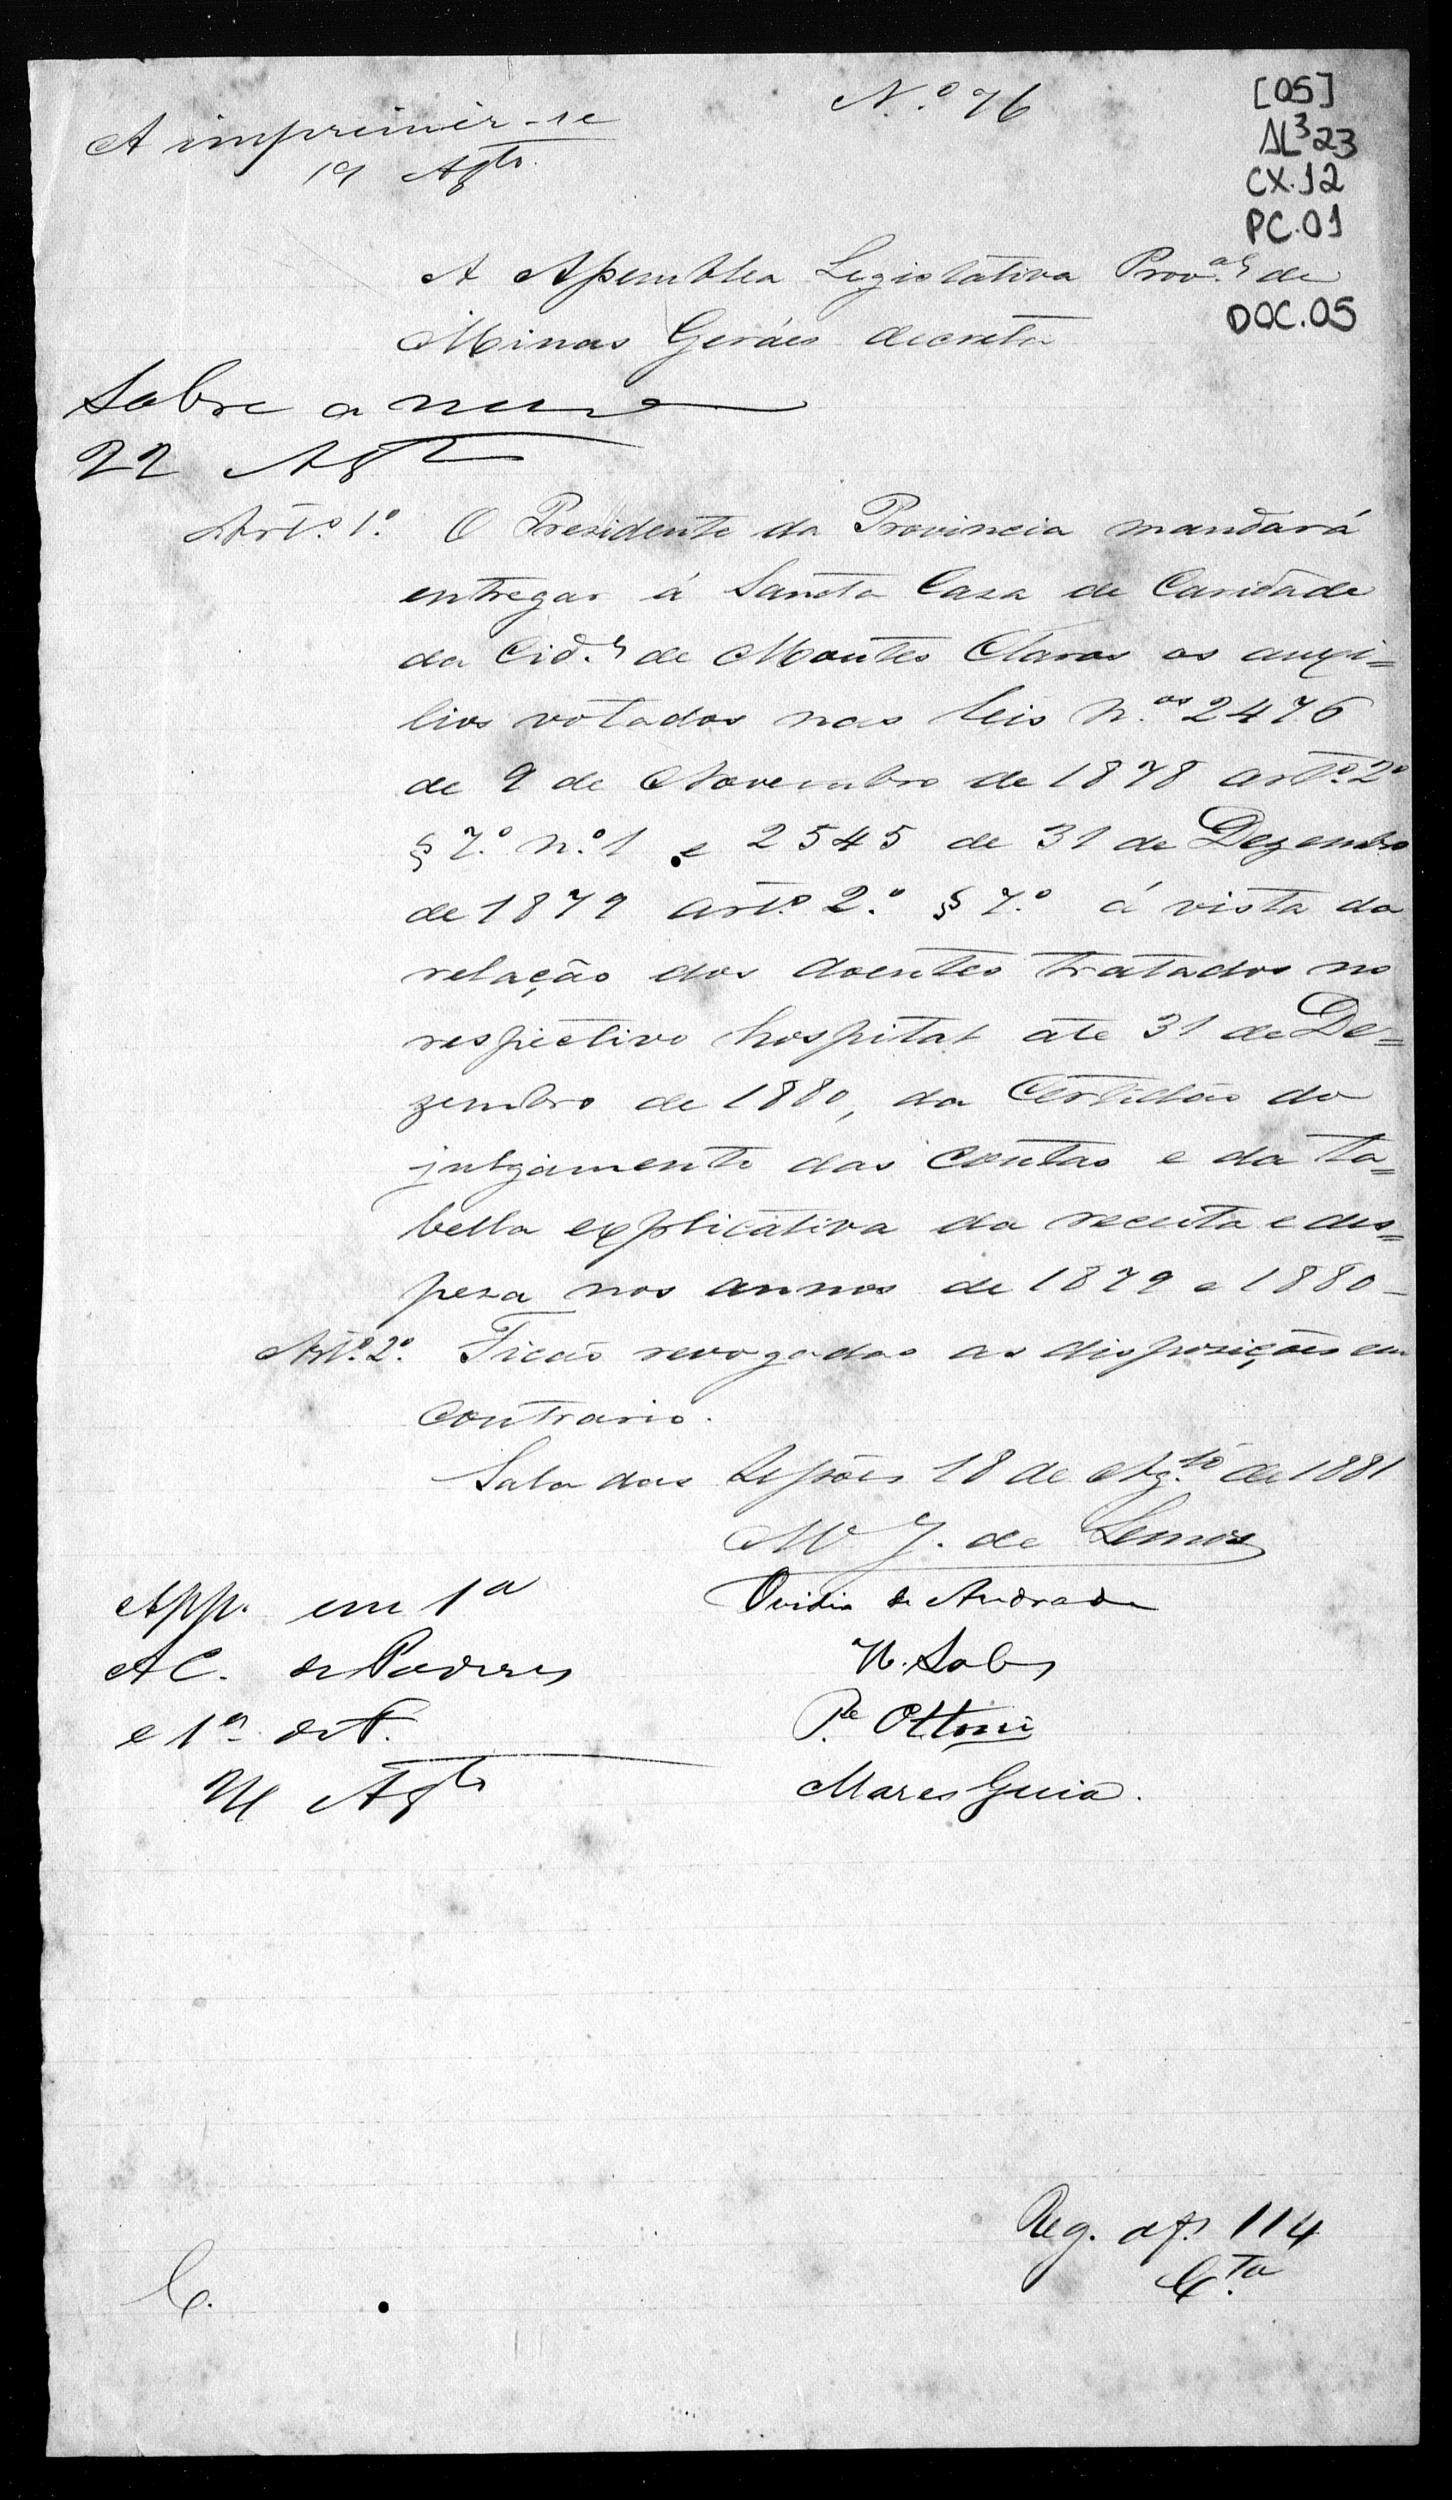 N.º 76
[05]
AL³23
CX.12
PC.01
DOC.05
A imprimir-se
19 Agto.
A Assemblea Legislativa Prov.al de
Minas Geráes decreta
Sobre a mesa
22 Agto
Art.º 1.º O Presidente da Provincia mandará
entregar á Sancta Casa de Caridade
da Cid.e de Montes Claros os auxi=
lios votados nas leis n.os 2476
de 9 de Novembro de 1878 art.º 2º
§ 7.º n.º 1 e 2545 de 31 de Dezembro
de 1879 art.º 2.º § 7.º á vista da
relação dos doentes tratados no
respectivo hospital até 31 de De=
zembro de 1880, da Certidão do
julgamento das contas e da ta=
bella explicativa da receita e des=
peza nos annos de 1879 e 1880-
Art.º 2.º Ficão revogadas as disposições em
contrario.
Sala das Sessões 18 de Ag.to de 1881
M J. de Lemos
Ovidio de Andrade
N. Sales
P.e Ottoni
Mares Guia.
App. em 1ª
A C. de Poderes
e 1ª de F.
Agto
Reg. a f. 114
C.ta
C.